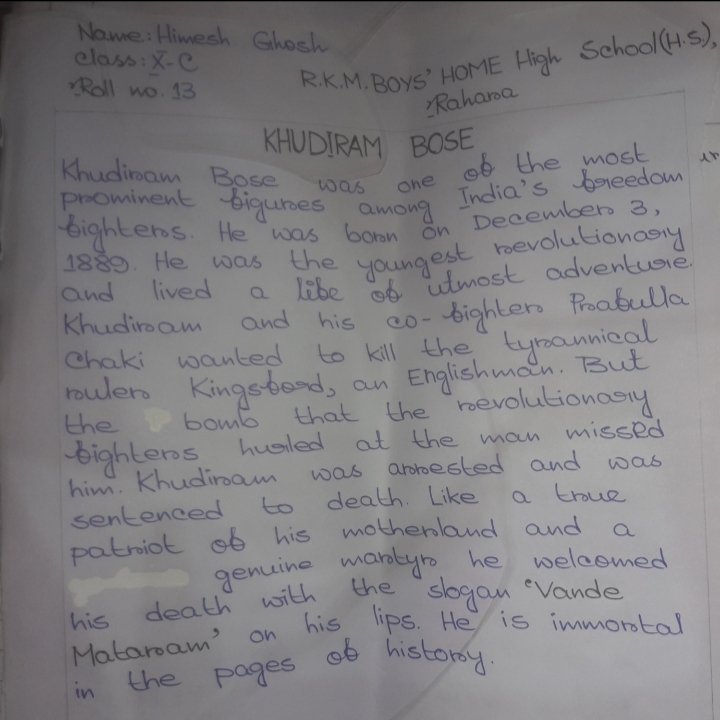 Name: Himesh Ghosh
class: X-C
Roll no. 13
R.K.M. BOYS' HOME High School(H.S),
Rahara
KHUDIRAM BOSE
Khudiram Bose was one of the most
prominent figures among India's freedom
fighters. He was born on December 3,
1889. He was the youngest revolutionary
and lived a life of utmost adventure.
Khudiram and his co-fighter Prafulla
Chaki wanted to kill the tyrannical
ruler Kingsford, an Englishman. But
the bomb that the revolutionary
fighters hurled at the man missed
him. Khudiram was arrested and was
sentenced to death. Like a true
patriot of his motherland and a
genuine martyr he welcomed
his death with the slogan 'Vande
Mataram' on his lips. He is immortal
in the pages of history.